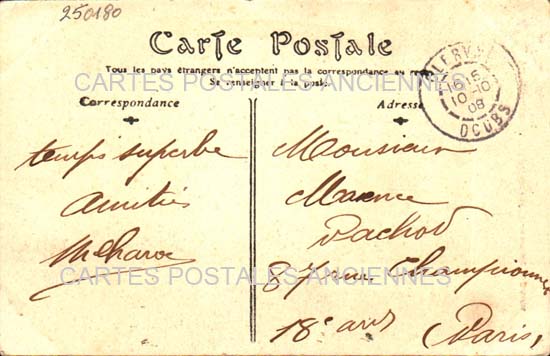 250180
Carte Postale
Tous les pays étrangers n'acceptent pas la correspondance au
Se renseigner à la poste
CARTES POSTALES ANCIENNES
Correspondance
Adresse
16 E
10 -10
08
DOUBS
temps superbe
Amitiés
Monsieur
Maxence
87 rue Championnet
18e arr
Paris,
CARTES POSTALES ANCIENNES